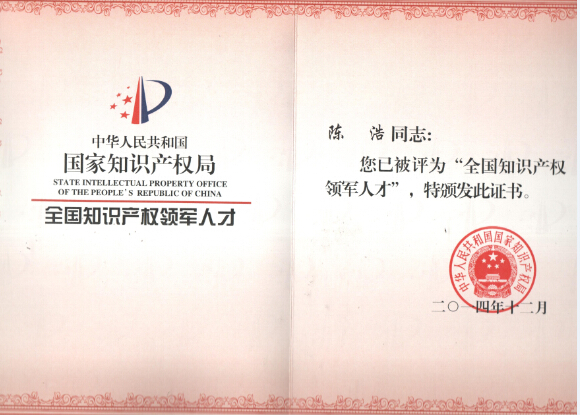 中华人民共和国
国家知识产权局
STATE INTELLECTUAL PROPERTY OFFICE
OF THE PEOPLE'S REPUBLIC OF CHINA
全国知识产权领军人才
陈 浩同志：
您已被评为“全国知识产权
领军人才”，特颁发此证书。
中华人民共和国国家知识产权局
二〇一四年十二月